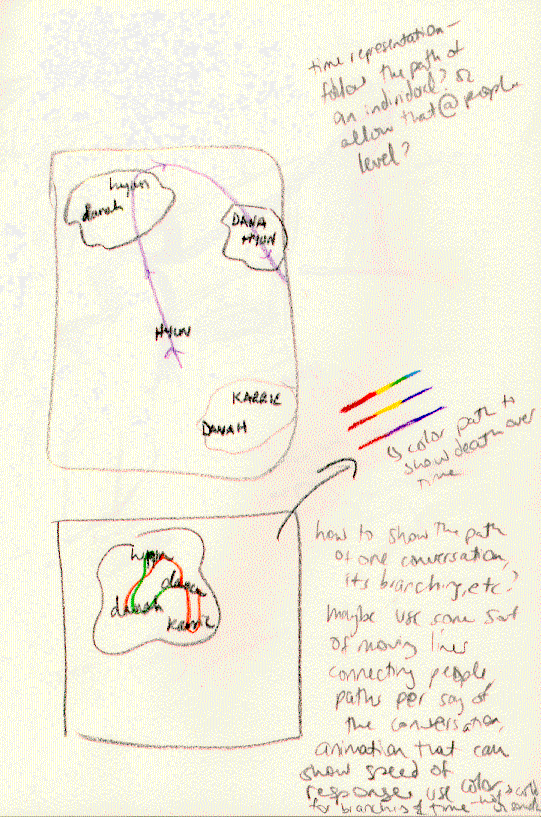 time representation—
follow the path of
an individual? or
allow that @ people
level?
hyun
danah
DANA
HYUN
HYUN
KARRIE
DANAH
color path to
show death over
time
hyun
danah
karrie
how to show the path
of one conversation,
its branching, etc.?
maybe use some sort
of moving lines
connecting people
paths per say of
the conversation,
animation that can
show speed of
response, use color
for branching of time